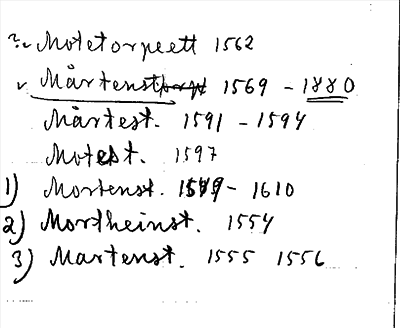 ?. Motetorpeett 1562
v Mårtenstorp 1569 - 1880
Mårtest. 1591 - 1594
Motest. 1597
1) Mortenst. 1549 - 1610
2) Mortheinst. 1554
3) Martenst. 1555 1556